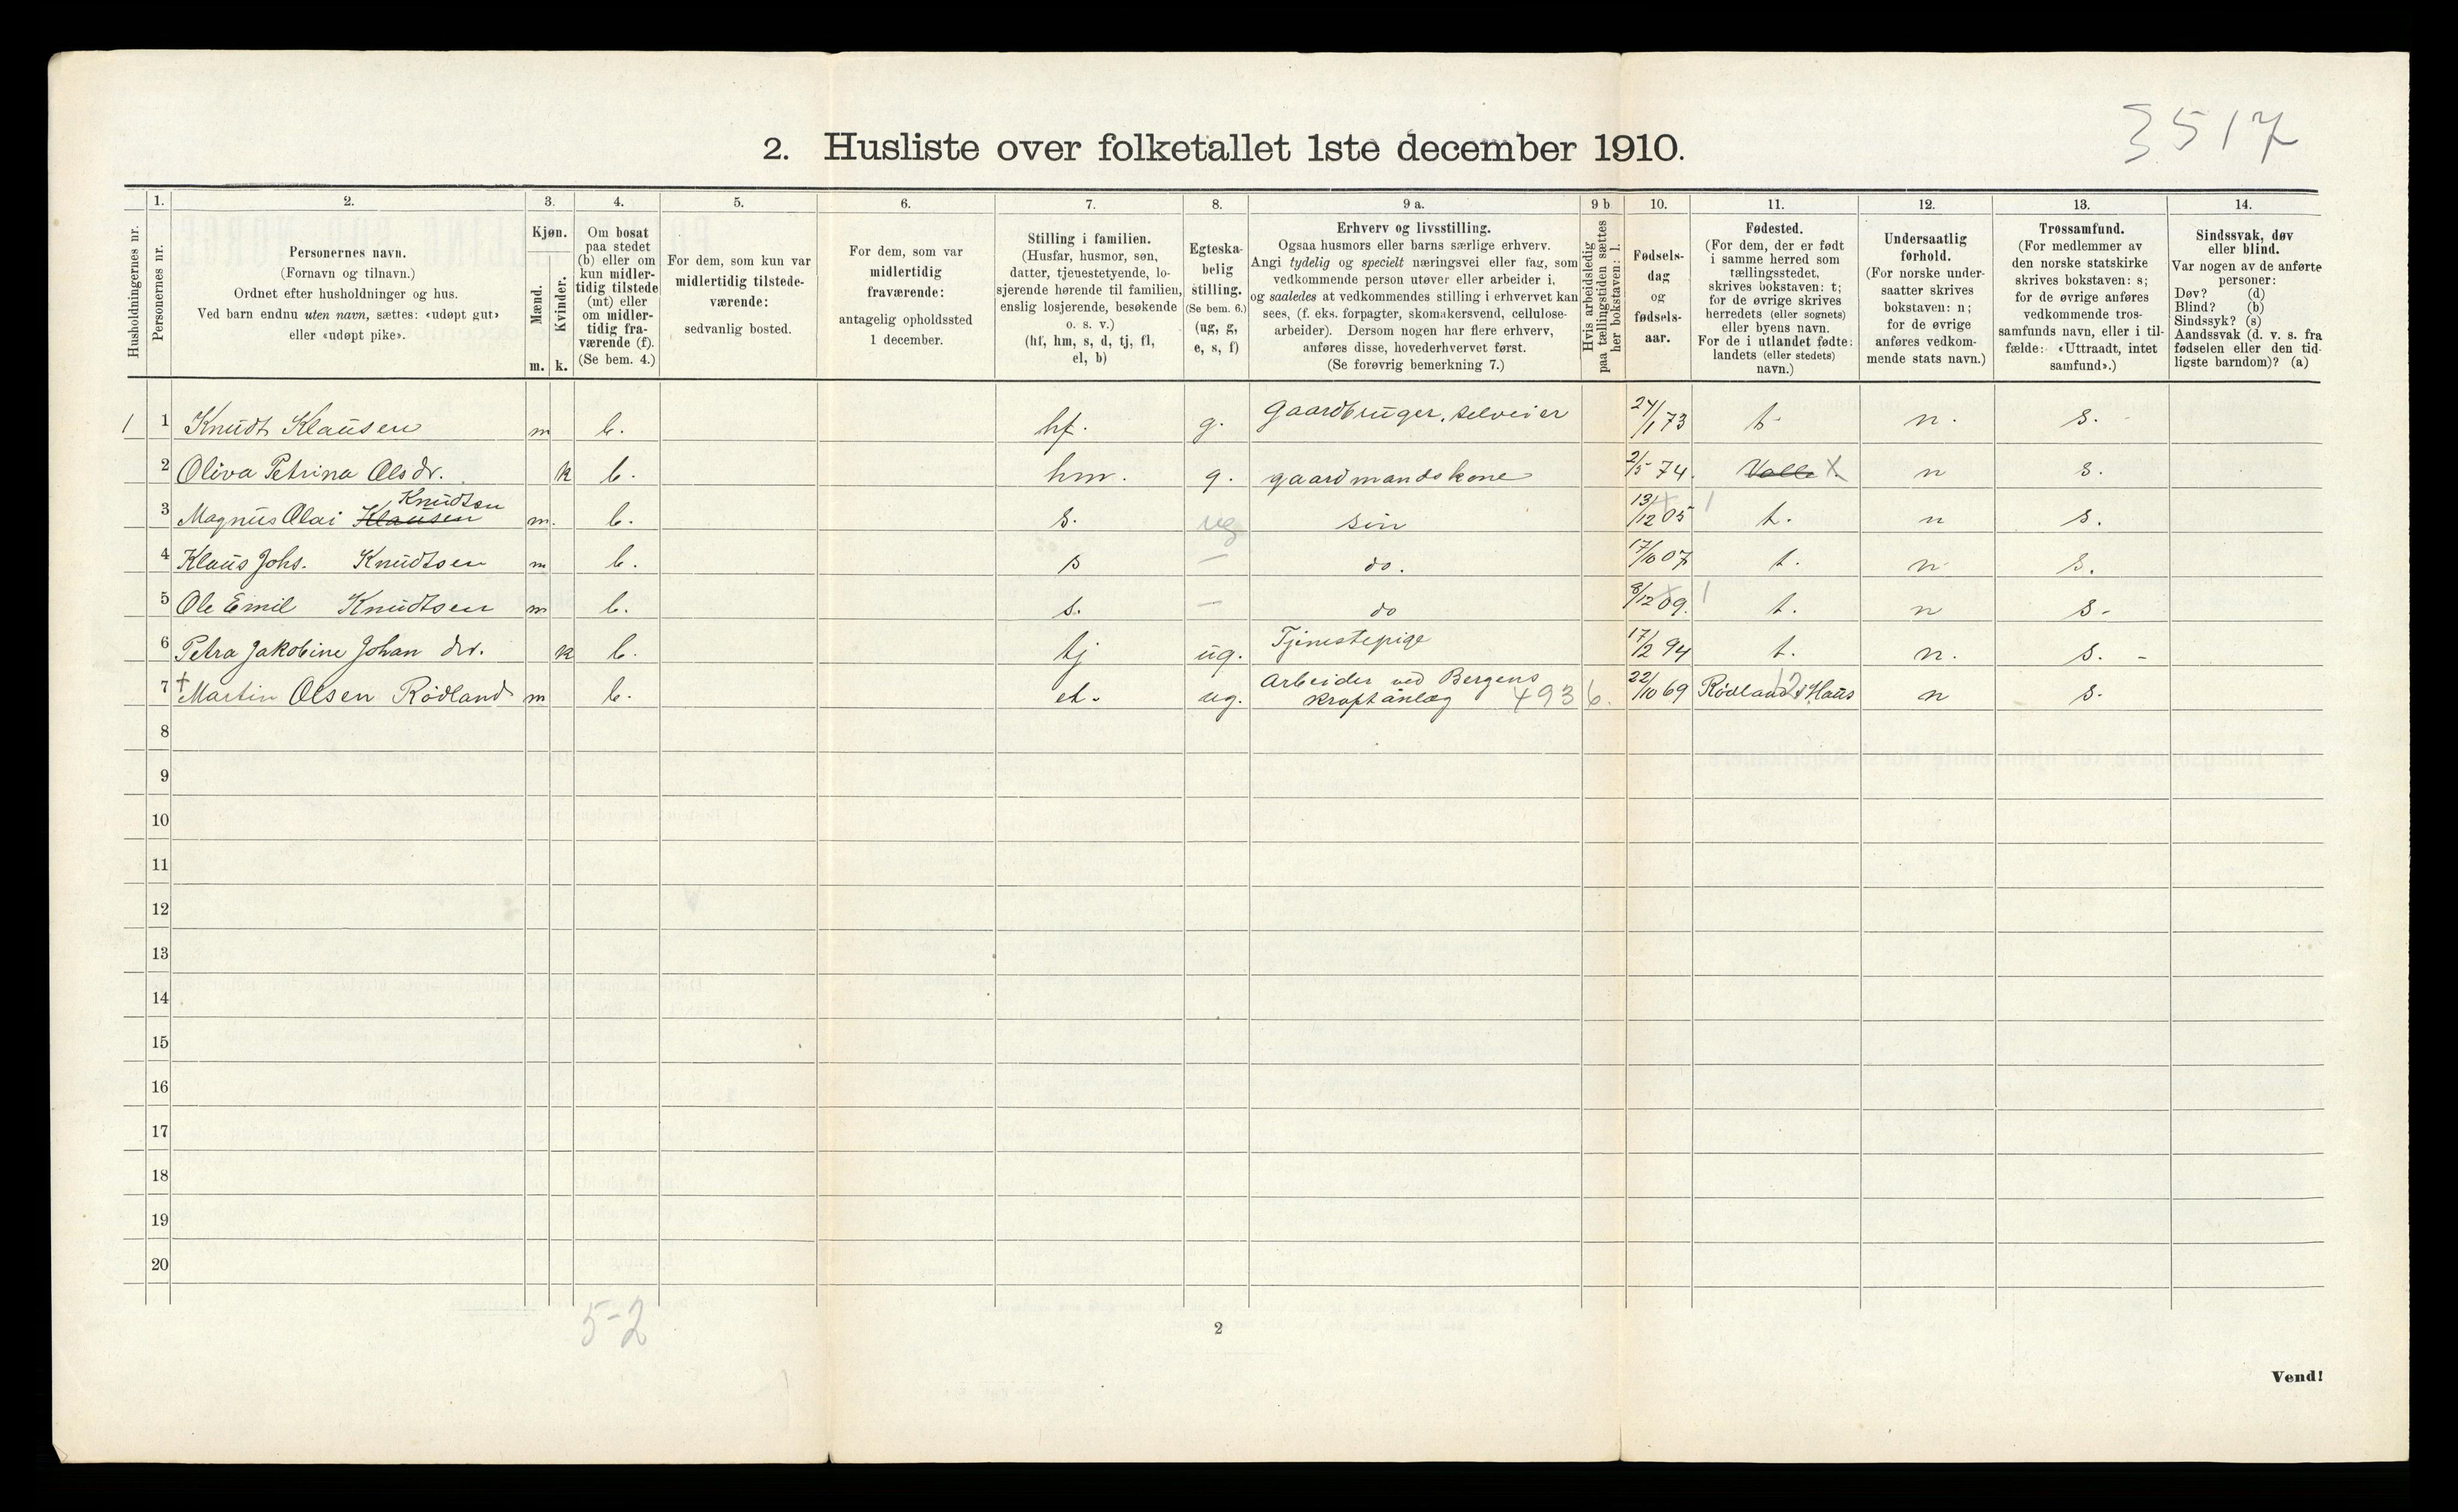 3517
2. Husliste over folketallet 1ste december 1910.
1. 2. 3. 4. 5. 6. 7. 8. 9 a. 9 b 10. 11. 12. 13. 14.
Husholdningernes nr.
Personernes nr.
Personernes navn.
(Fornavn og tilnavn.)
Ordnet efter husholdninger og hus.
Ved barn endnu uten navn, sættes: «udøpt gut»
eller «udøpt pike».
Kjøn.
Mænd.
Kvinder.
m. k.
Om bosat
paa stedet
(b) eller om
kun midler-
tidig tilstede
(mt) eller
om midler-
tidig fra-
værende (f).
(Se bem. 4.)
For dem, som kun var
midlertidig tilstede-
værende:
sedvanlig bosted.
For dem, som var
midlertidig
fraværende:
antagelig opholdssted
1 december.
Stilling i familien.
(Husfar, husmor, søn,
datter, tjenestetyende, lo-
sjerende hørende til familien,
enslig losjerende, besøkende
o. s. v.)
(hf, hm, s, d, tj, fl,
el, b)
Egteska-
belig
stilling.
(Se bem. 6.)
(ug, g,
e, s, f)
Erhverv og livsstilling.
Ogsaa husmors eller barns særlige erhverv.
Angi tydelig og specielt næringsvei eller fag, som
vedkommende person utøver eller arbeider i,
og saaledes at vedkommendes stilling i erhvervet kan
sees, (f. eks. forpagter, skomakersvend, cellulose-
arbeider). Dersom nogen har flere erhverv,
anføres disse, hovederhvervet først.
(Se forøvrig bemerkning 7.)
Hvis arbeidsledig
paa tællingstiden sættes
her bokstaven: l.
Fødsels-
dag
og
fødsels-
aar.
Fødested.
(For dem, der er født
i samme herred som
tællingsstedet,
skrives bokstaven: t;
for de øvrige skrives
herredets (eller sognets)
eller byens navn.
For de i utlandet fødte:
landets (eller stedets)
navn.)
Undersaatlig
forhold.
(For norske under-
saatter skrives
bokstaven: n;
for de øvrige
anføres vedkom-
mende stats navn.)
Trossamfund.
(For medlemmer av
den norske statskirke
skrives bokstaven: s;
for de øvrige anføres
vedkommende tros-
samfunds navn, eller i til-
fælde: «Uttraadt, intet
samfund».)
Sindssvak, døv
eller blind.
Var nogen av de anførte
personer:
Døv? (d)
Blind? (b)
Sindssyk? (s)
Aandssvak (d. v. s. fra
fødselen eller den tid-
ligste barndom)? (a)
1 1 Knudt Klausen m b. hf. g. Gaardbruger, selveier 24/1 73 t. n. s.
2 Oliva Petrina Olsdr. k b. hm. g. gaardmandskone 2/5 74. Valle X n s.
Knudtsen
3 Magnus Olai Klausen m. b. s. ug sön 13/12 05 1 t. n s.
4 Klaus Johs. Knudtsen m b. s — do. 17/10 07 t. n s.
5 Ole Emil Knudtsen m b. s. — do 8/12 09. 1 t. n s.
6 Petra Jakobine Johan dr. k b. tj ug. Tjenestepige 17/2 94 t. n. s.
7 † Martin Olsen Rödland m b. el. ug. Arbeider ved Bergens
kraftanlæg 4936. 22/10 69 Rödland i Haus 12 n s.
8
9
10
11
12
13
14
15
16
17
18
19
20
5-2
2
Vend!